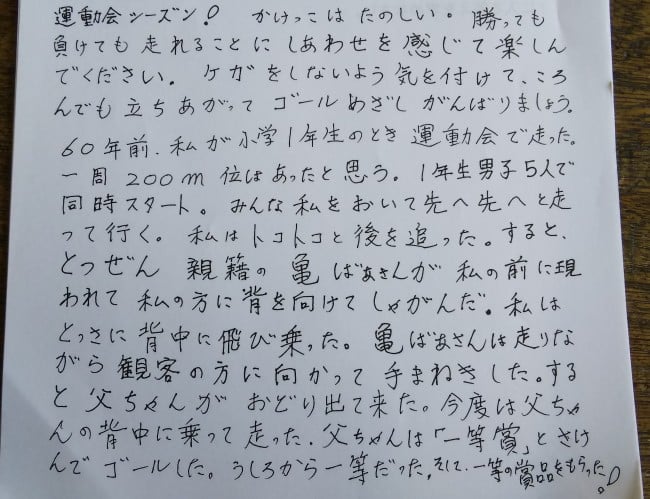 運動会シーズン! かけっこはたのしい。勝っても
負けても走れることにしあわせを感じて楽しん
でください。ケガをしないよう気を付けて、ころ
んでも立ちあがってゴールめざしがんばりましょう。
60年前、私が小学1年生のとき運動会で走った。
一周200m位はあったと思う。1年生男子5人で
同時スタート。みんな私をおいて先へ先へと走
って行く。私はトコトコと後を追った。すると、
とつぜん親籍の亀ばあさんが私の前に現
われて私の方に背を向けてしゃがんだ。私は
とっさに背中に飛び乗った。亀ばあさんは走りな
がら観客の方に向かって手まねきした。する
と父ちゃんがおどり出て来た。今度は父ちゃ
んの背中に乗って走った。父ちゃんは「一等賞」とさけ
んでゴールした。うしろから一等だった。そして、一等の賞品をもらった!